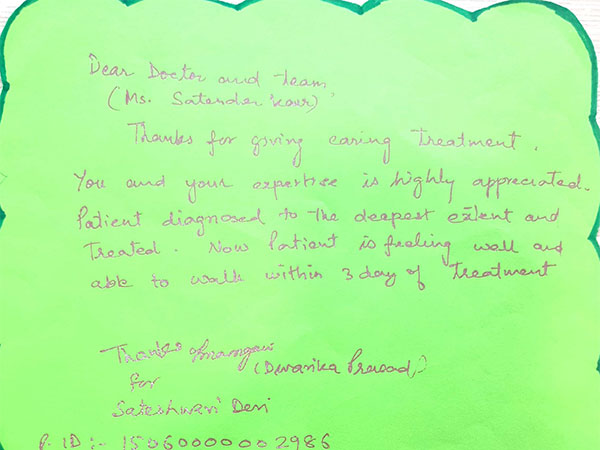 Dear Doctor and team
(Ms. Satender Kour)
Thanks for giving caring treatment.
You and your expertise is highly appreciated.
Patient diagnosed to the deepest extent and
Treated. Now Patient is feeling well and
able to walk within 3 day of treatment
Thanks
(Dwarika Prasad)
for
Sateshwari Devi
P. ID :- 15060000002986